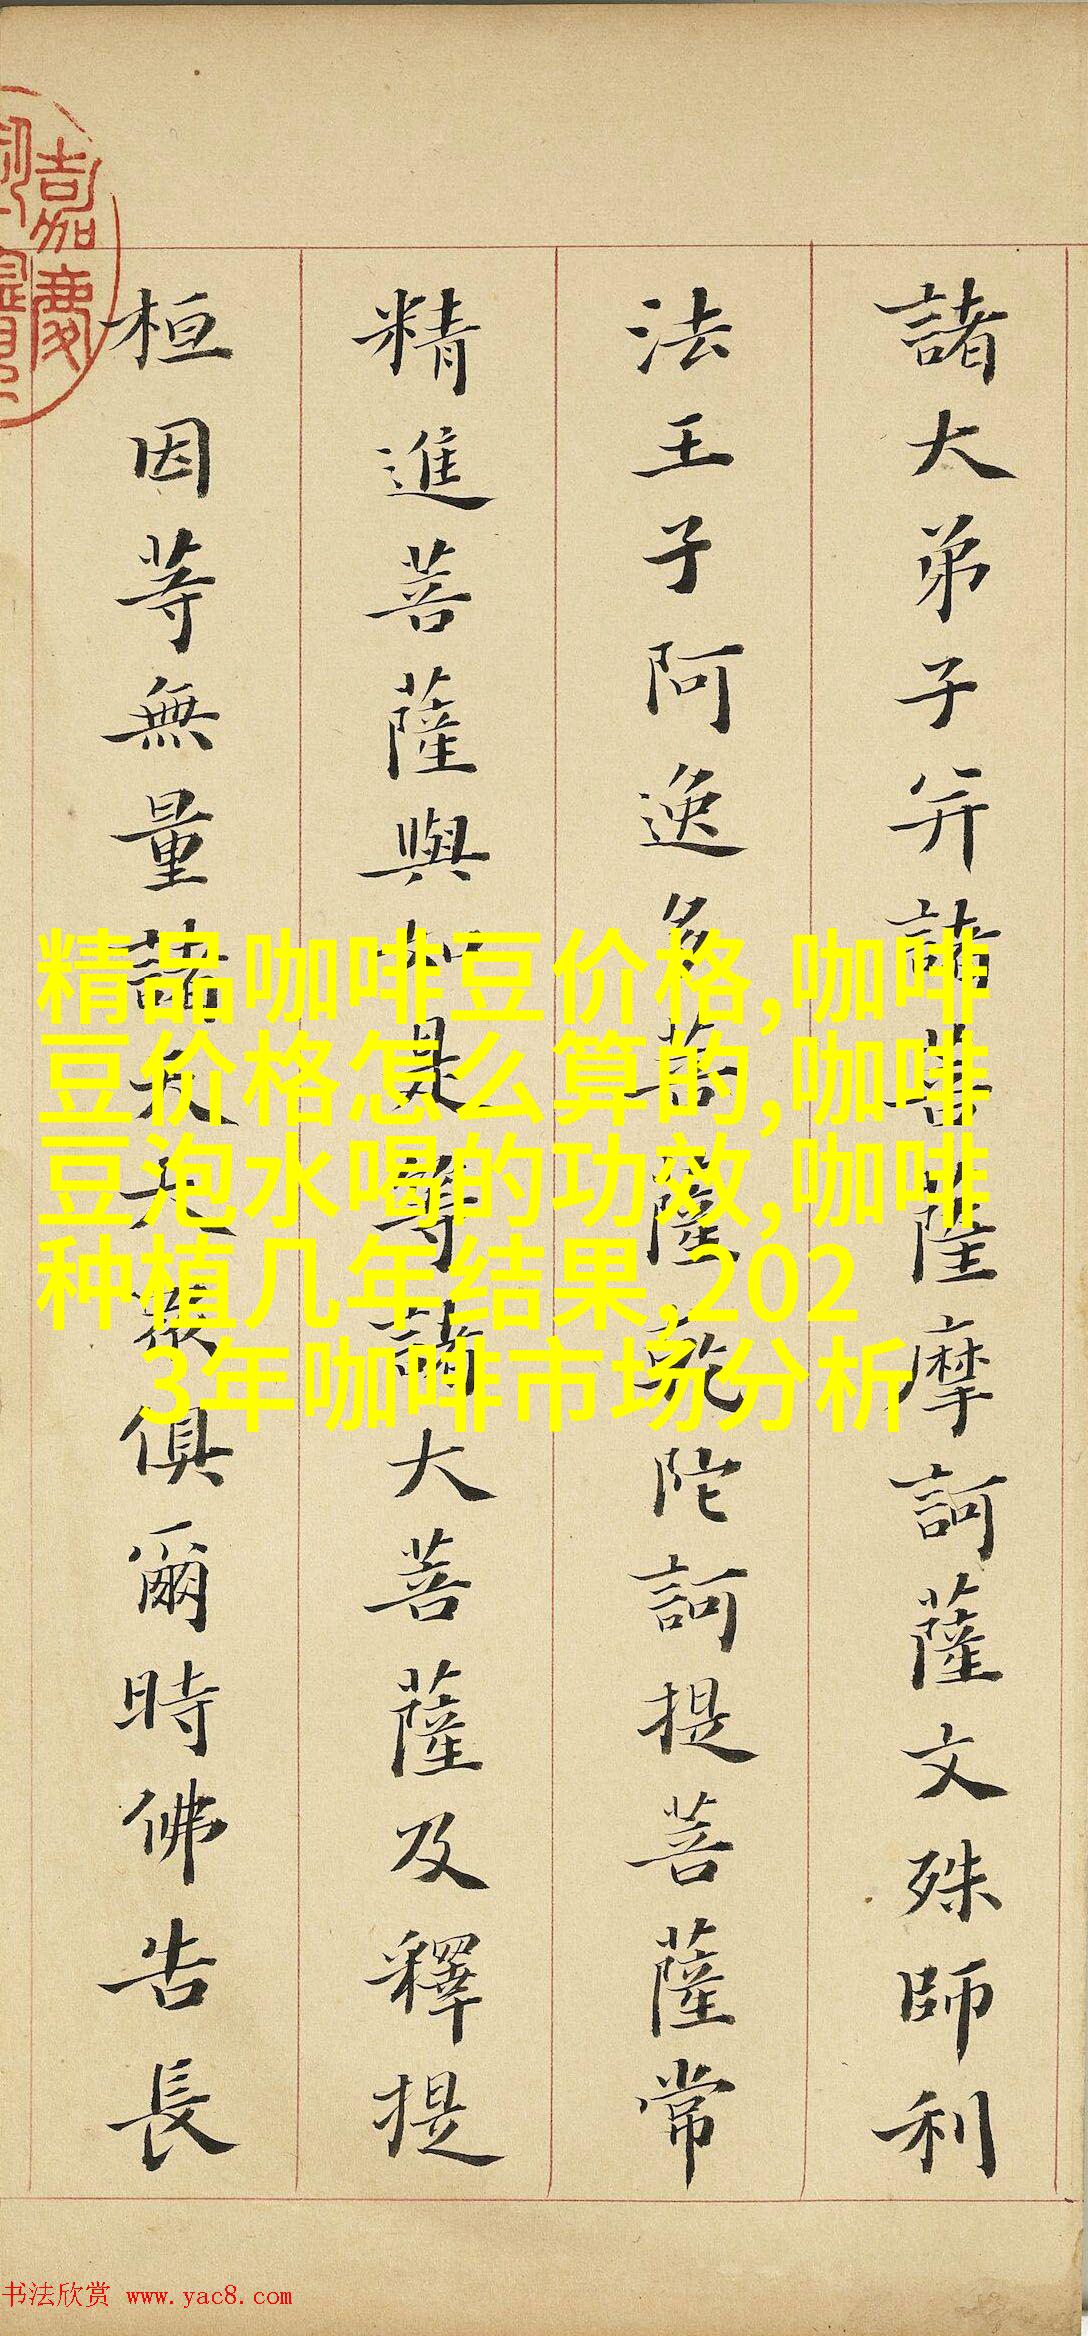 諸大弟子并諸菩薩摩訶薩文殊師利
法王子阿逸多菩薩乾陀訶提菩薩常
精進菩薩與如是等諸大菩薩及釋提
桓因等無量諸天大衆俱爾時佛告長
嘉慶
精品咖啡豆价格,咖啡
豆价格怎么算的,咖啡
豆泡水喝的功效,咖啡
种植几年结果,202
3年咖啡市场分析
书法欣赏 www.yac8.com